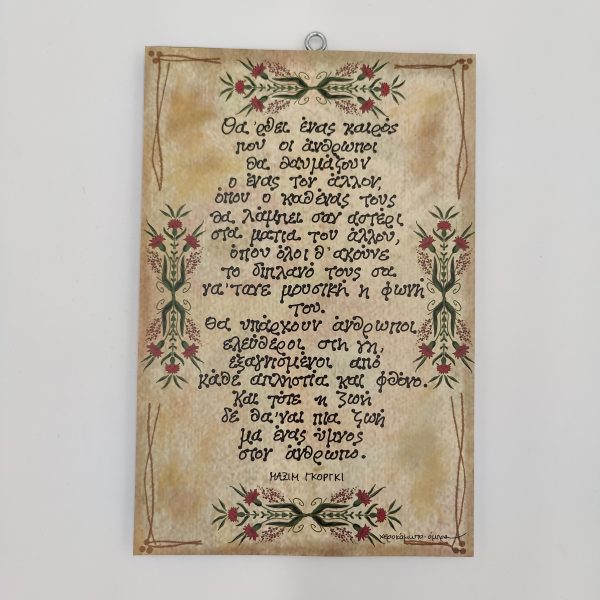 Θα 'ρθει ένας καιρός
που οι άνθρωποι
θα θαυμάζουν
ο ένας τον άλλον,
όπου ο καθένας τους
θα λάμπει σαν αστέρι
στα ματια του άλλου,
όπου όλοι θ' ακούνε
το διπλανό τους σα
να 'τανε μουσική η φωνή
του.
Θα υπάρχουν άνθρωποι
ελεύθεροι στη γη,
εξαγνισμένοι από
κάθε απληστία και φθόνο.
Και τότε η ζωή
δε θα 'ναι πια ζωή
μα ένας ύμνος
στον άνθρωπο.
ΜΑΞΙΜ ΓΚΟΡΓΚΙ